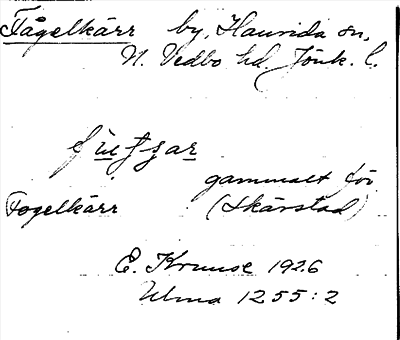 Fågelkärr by, Haurida sn,
N. Vedbo hd. Jönk. l.
gammalt för
Fogelkärr (Skärstad)
E. Kruuse 1926
Ulma 1255:2